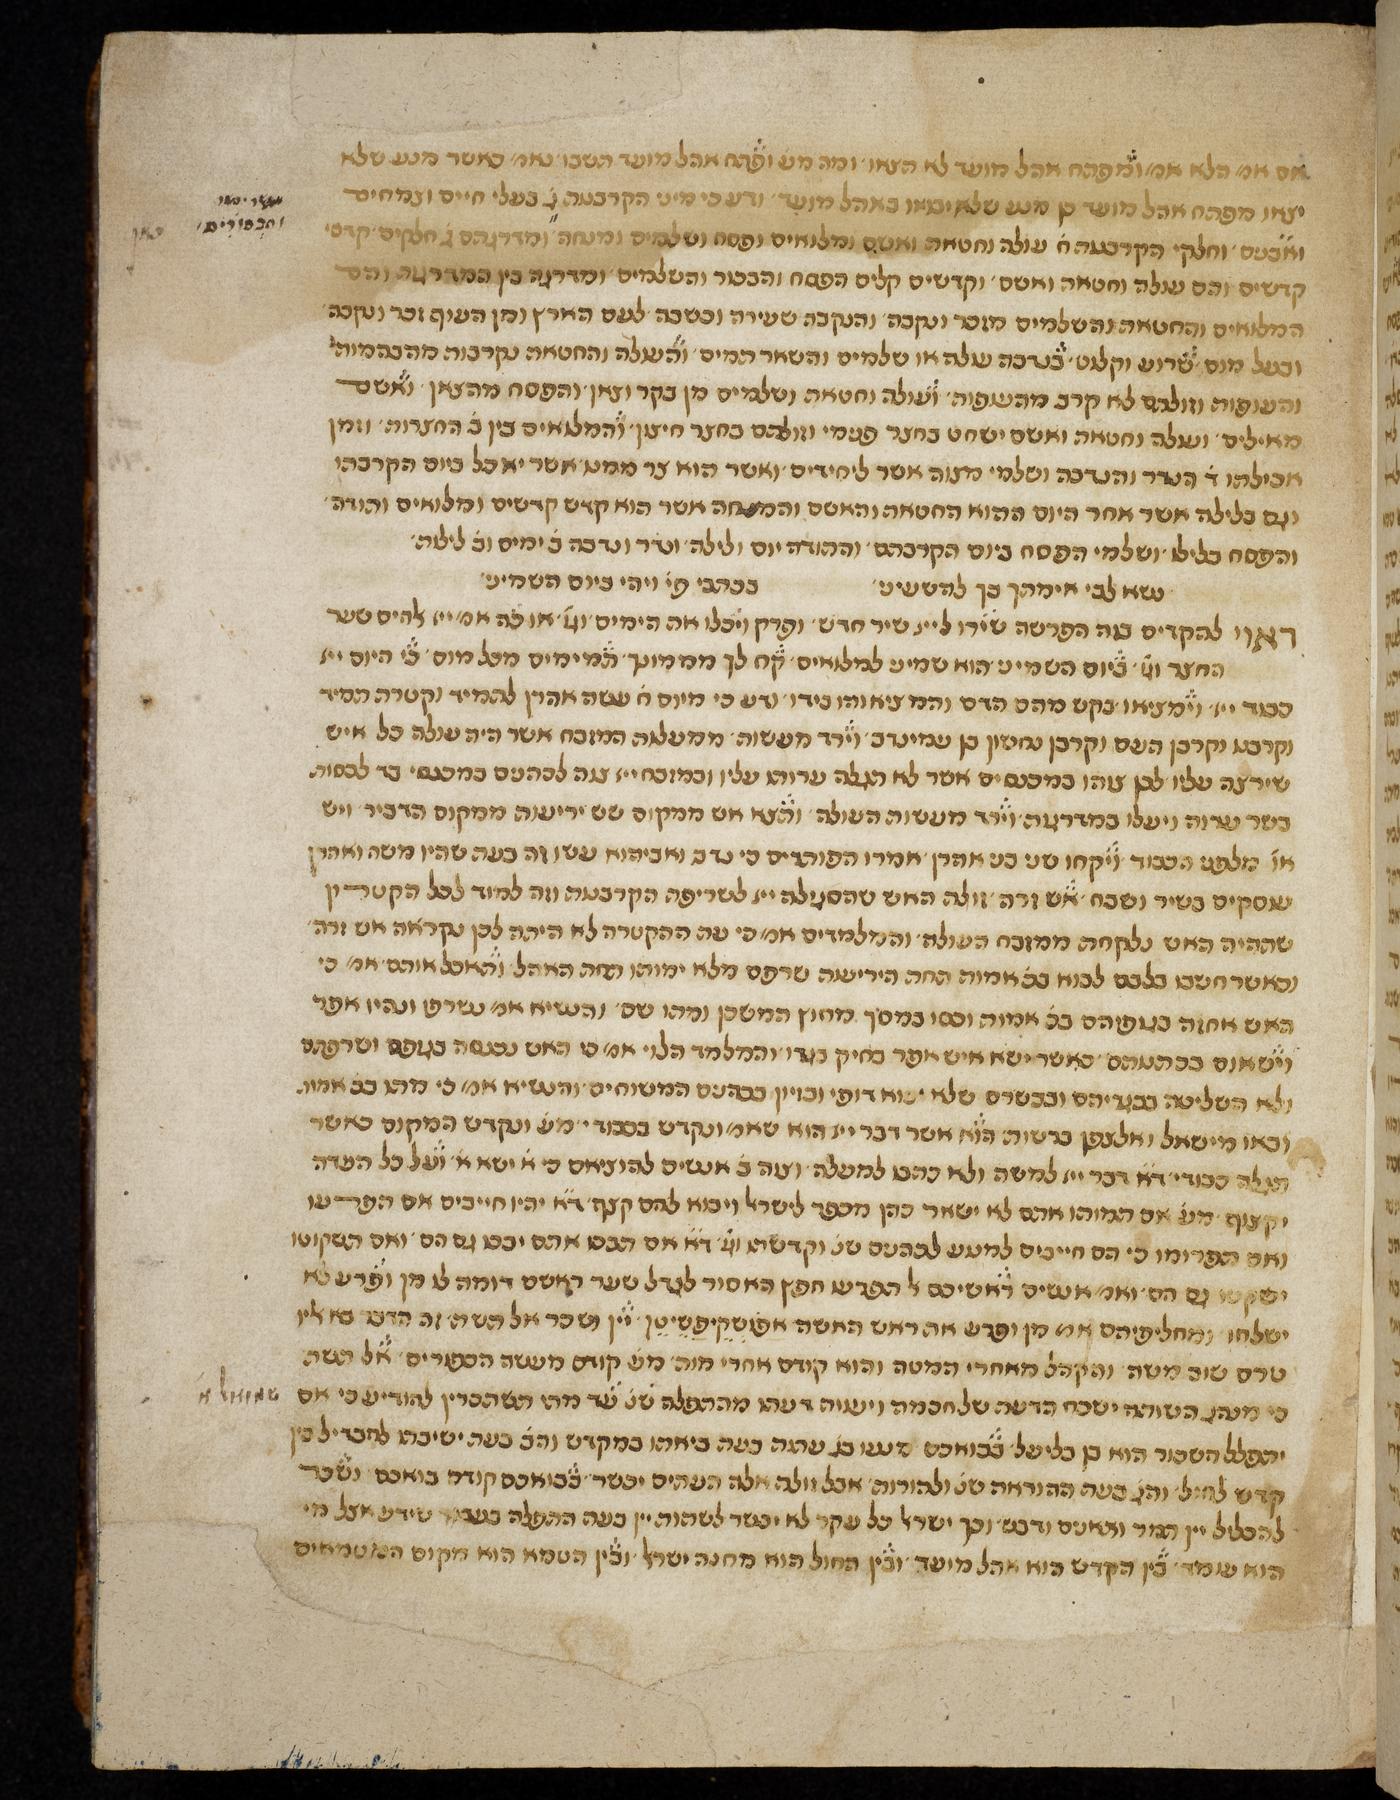 אם אמ׳ הלא אמ׳ ומפתח אהל מועד לא תצאו׳ ומה מע׳ ופתח אהל מועד תשבו׳ נאמ׳ כאשר מנע שלא
יצאו מפתח אהל מועד כן מנע שלא יבואו באהל מועד׳ ודע כי מיני הקרבנות ג׳ בעלי חיים וצמחים
ואבנים׳ וחלקי הקרבנות ה׳ עולה וחטאת ואשם ומלואים ופסח ושלמים ומנחה׳ ומדרגתם ג׳ חלקים׳ קדשי
קדשים והם עולה וחטאת ואשם׳ וקדשים קלים הפסח והבכור והשלמים׳ ומדרגה בין המדרגות והם
המלואים והחטאת והשלמים מזכר ונקבה׳ והנקבה שעירה וכשבה לעם הארץ ומן העוף זכר ונקבה׳
ובעל מום שרוע וקלוט׳ בנדבה עולה או שלמים והשאר תמים׳ והעולה והחטאת נקרבות מהבהמות
והעופות וזולתם לא קרב מהעופות׳ ועולה וחטאת ושלמים מן בקר וצאן׳ והפסח מהצאן׳ ואשם
מאילים׳ ועולה וחטאת ואשם ישחט בחצר פנימי וזולתם בחצר חיצון׳ והמלואים בין ב׳ החצרות׳ וזמן
אכילתו ד׳ הנדר והנדבה ושלמי מצוה אשר ליחידים׳ ואשר הוא צר ממנו אשר יאכל ביום הקרבתו
וגם בלילה אשר אחר היום ההוא החטאת והאשם והמנחה אשר הוא קדש קדשים ומלואים ותודה׳
והפסח בלילו׳ ושלמי הפסח ביום הקרבתם׳ והתודה יום ולילה׳ ונדר ונדבה ב׳ ימים וב׳ לילות׳
נשא לבי אימתך בך להשעינו׳ בכתבי פי׳ ויהי ביום השמיני׳
ראוי להקדים בזה הפרשה שירו לייי׳ שיר חדש׳ ופרק ויכלו את הימים׳ וג׳׳ או כה אמ׳ ייי׳ אלהים שער
החצר וג׳׳ ביום השמיני הוא שמיני למלואים׳ קח לך מממונך׳ תמימים מכל מום׳ כי היום ייי׳
כבוד ייי׳ וימציאו׳ בקש מהם הדם והמציאוהו בידו׳ ודע כי מיום ח׳ עשה אהרן לתמיד וקטרת תמיד
וקרבנו וקרבן העם וקרבן נחשון בן עמינדב׳ וירד מעשות׳ ממעלות המזבח אשר היה עולה כל איש
שירצה עליו לכן צוהו במכנסים אשר לא תגלה ערותו עליו ובמזבח ייי׳ צוה לכהנים במכנסי בד לכסות
בשר ערוה ויעלו במדרגות׳ וירד מעשות העולה׳ ותצא אש ממקום שש יריעות ממקום הדביר׳ ויש
או׳ מלפני הכבוד׳ ויקחו שני בני אהרן׳ אמרו הפותרים כי נדב ואביהוא עשו זה בעת שהיו משה ואהרן
עוסקים בשיר ושבח׳ אש זרה׳ זולת האש שהסגילה ייי׳ לשריפת הקרבנות וזה למוד לכל הקטרין
שתהיה האש נלקחת ממזבח העולה׳ והמלמדים אמ׳ כי עת ההקטרה לא היתה לכן נקראה אש זרה׳
וכאשר חשבו בלבם לבוא בב׳ אמות תחת היריעות שרפם מלא ימותו תחת האהל׳ ותאכל אותם׳ אמ׳ כי
האש אחזה בגופיהם בב׳ אמות וכסו במסך מחוץ המשכן ומתו שם׳ והנשיא אמ׳ נשרפו ונהיו אפר
וישאום בכתנותם׳ כאשר ישא איש אפר בחיק בגדו׳ והמלמד הלוי אמ׳ כי האש נכנסה בגופם ושרפתם
ולא השליטה בבגדיהם ובבשרם שלא יבוא דופי ובזיון בכהנים המשוחים׳ והנשיא אמ׳ כי מתו בב׳ אמות
ובאו מישאל ואלצפן ברשות׳ הוא אשר דבר ייי׳ הוא שאמ׳ ונקדש בכבודי׳ מע׳ ונקדש המקום כאשר
תגלה כבודי׳ ד׳׳א דבר ייי׳ למשה ולא כתבו למעלה׳ וצוה ב׳ אנשים להוציאם כי א׳ ישא א׳ ועל כל העדה
יקצוף׳ מע׳ אם תמותו אתם לא ישאר כהן מכפר לישרל ויבוא להם קצף׳ ד׳׳א יהיו חייבים אם תפרעו
ואם תפרומו כי הם חייבים למנוע לכהנים שנ׳ וקדשתו וג׳׳ ד׳׳א אם תבכו אתם יבכו גם הם׳ ואם תשקוטו
ישקטו גם הם׳ ואמ׳ אנשים ראשיכם אל תפרעו חפץ האסור לגדל שער ראשם דומה לו מן ופרע לא
ישלחו׳ ומחליפיהם אמ׳ מן ופרע את ראש האשה אפושקיפשיטן׳ יין ושכר אל תשת׳ זה הדבר בא אליו
טרם שוב משה׳ והקהל מאחרי המטה והוא קודם אחרי מות׳ מע׳ קודם מעשה הכפורים׳ אל תשת
כי מנהג השותה ישכח הדעת של חכמה ויעוית דעתו מהתפלה שנ׳ עד מתי תשתכרין להודיע כי אם
יתפלל השכור הוא בן בליעל׳ בבואכם מנעו בג׳ עתות בעת ביאתו במקדש והב׳ בעת ישיבתו להבדיל בין
קדש לחול׳ והג׳ בעת ההוראה שנ׳ ולהורות׳ אבל זולת אלה העתים יכשר׳ בבואכם קודם בואכם׳ ושכר
להכליל יין תמר ותאנים ודבש׳ וכך ישרל כל עקר לא יכשר לשתות יין בעת התפלה בעבור שידע אצל מי
הוא עומד׳ בין הקדש הוא אהל מועד׳ ובין החול הוא מחנה ישרל׳ ובין הטמא הוא מקום הטמאים
שמואל א׳